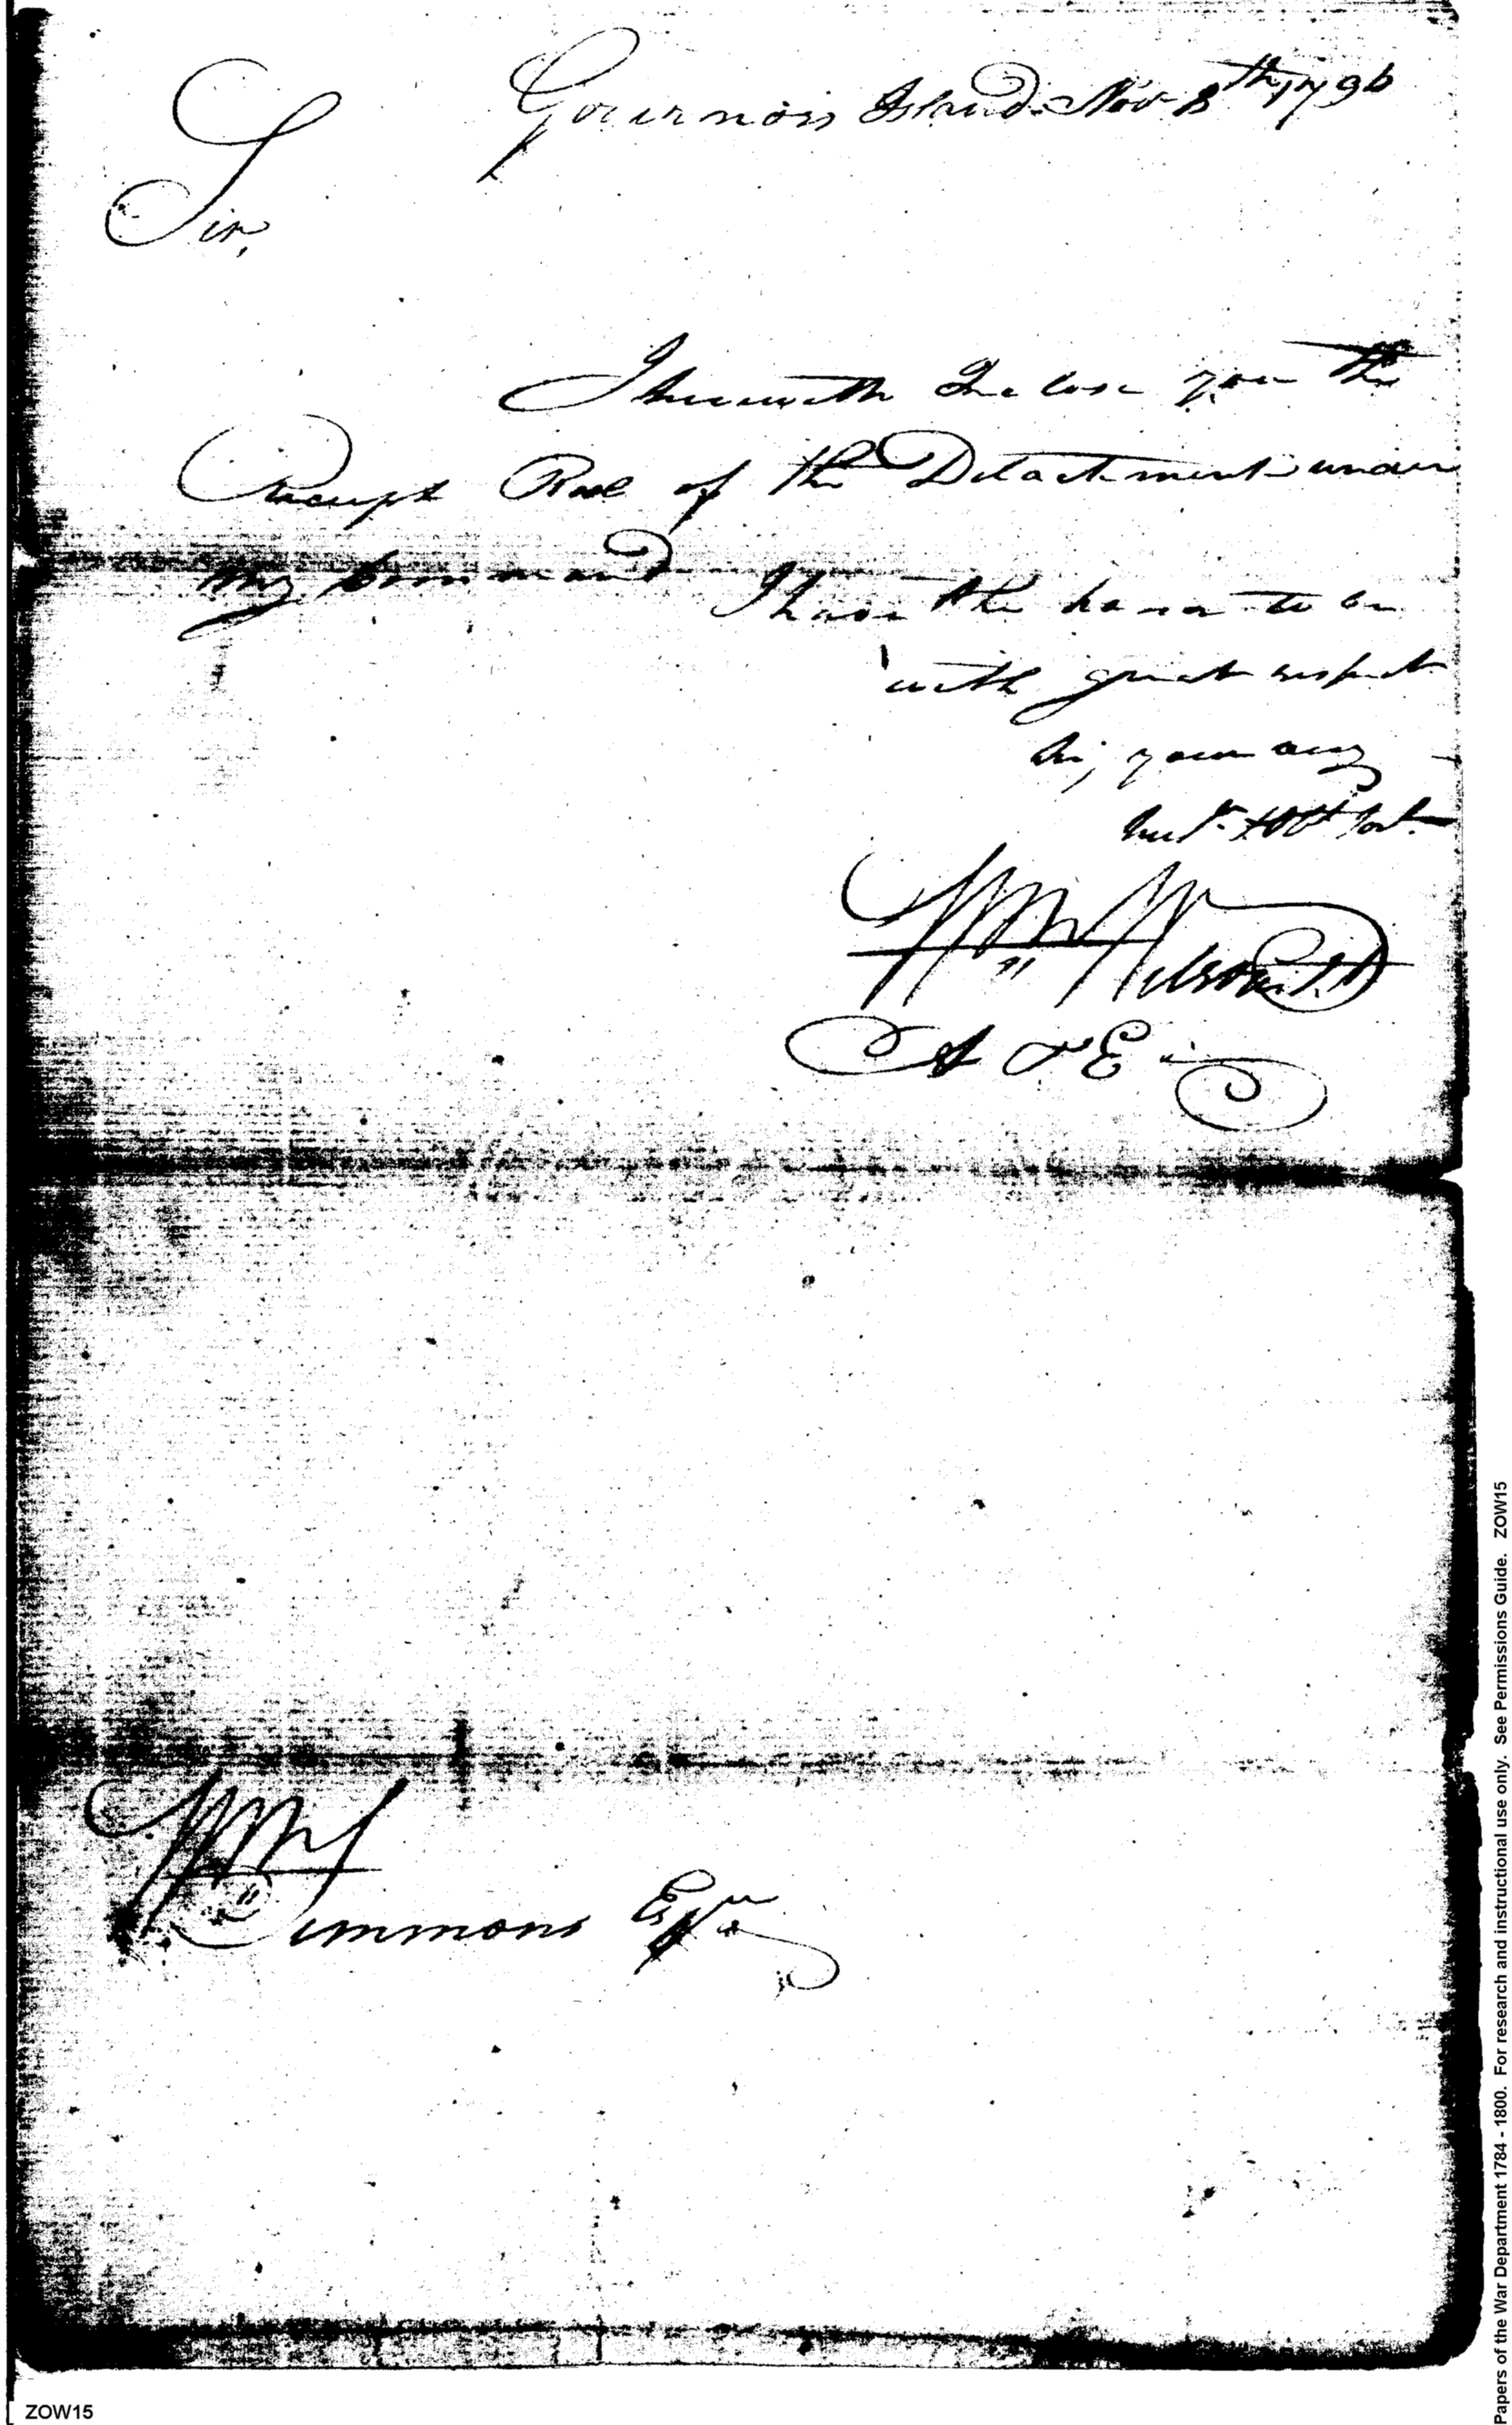 Governors Island Nov 8th 1796
Sir,
I herewith Inclose you the
Receipt Role of the Detachment under
my command I have the honor to be
with great respect
Sir, your very
huml. & Obt Sert.
Wm Wilson Lt.
A & E
Wm
Simmons Esqr
ZOW15
Papers of the War Department 1784 - 1800. For research and instructional use only. See Permissions Guide. ZOW15